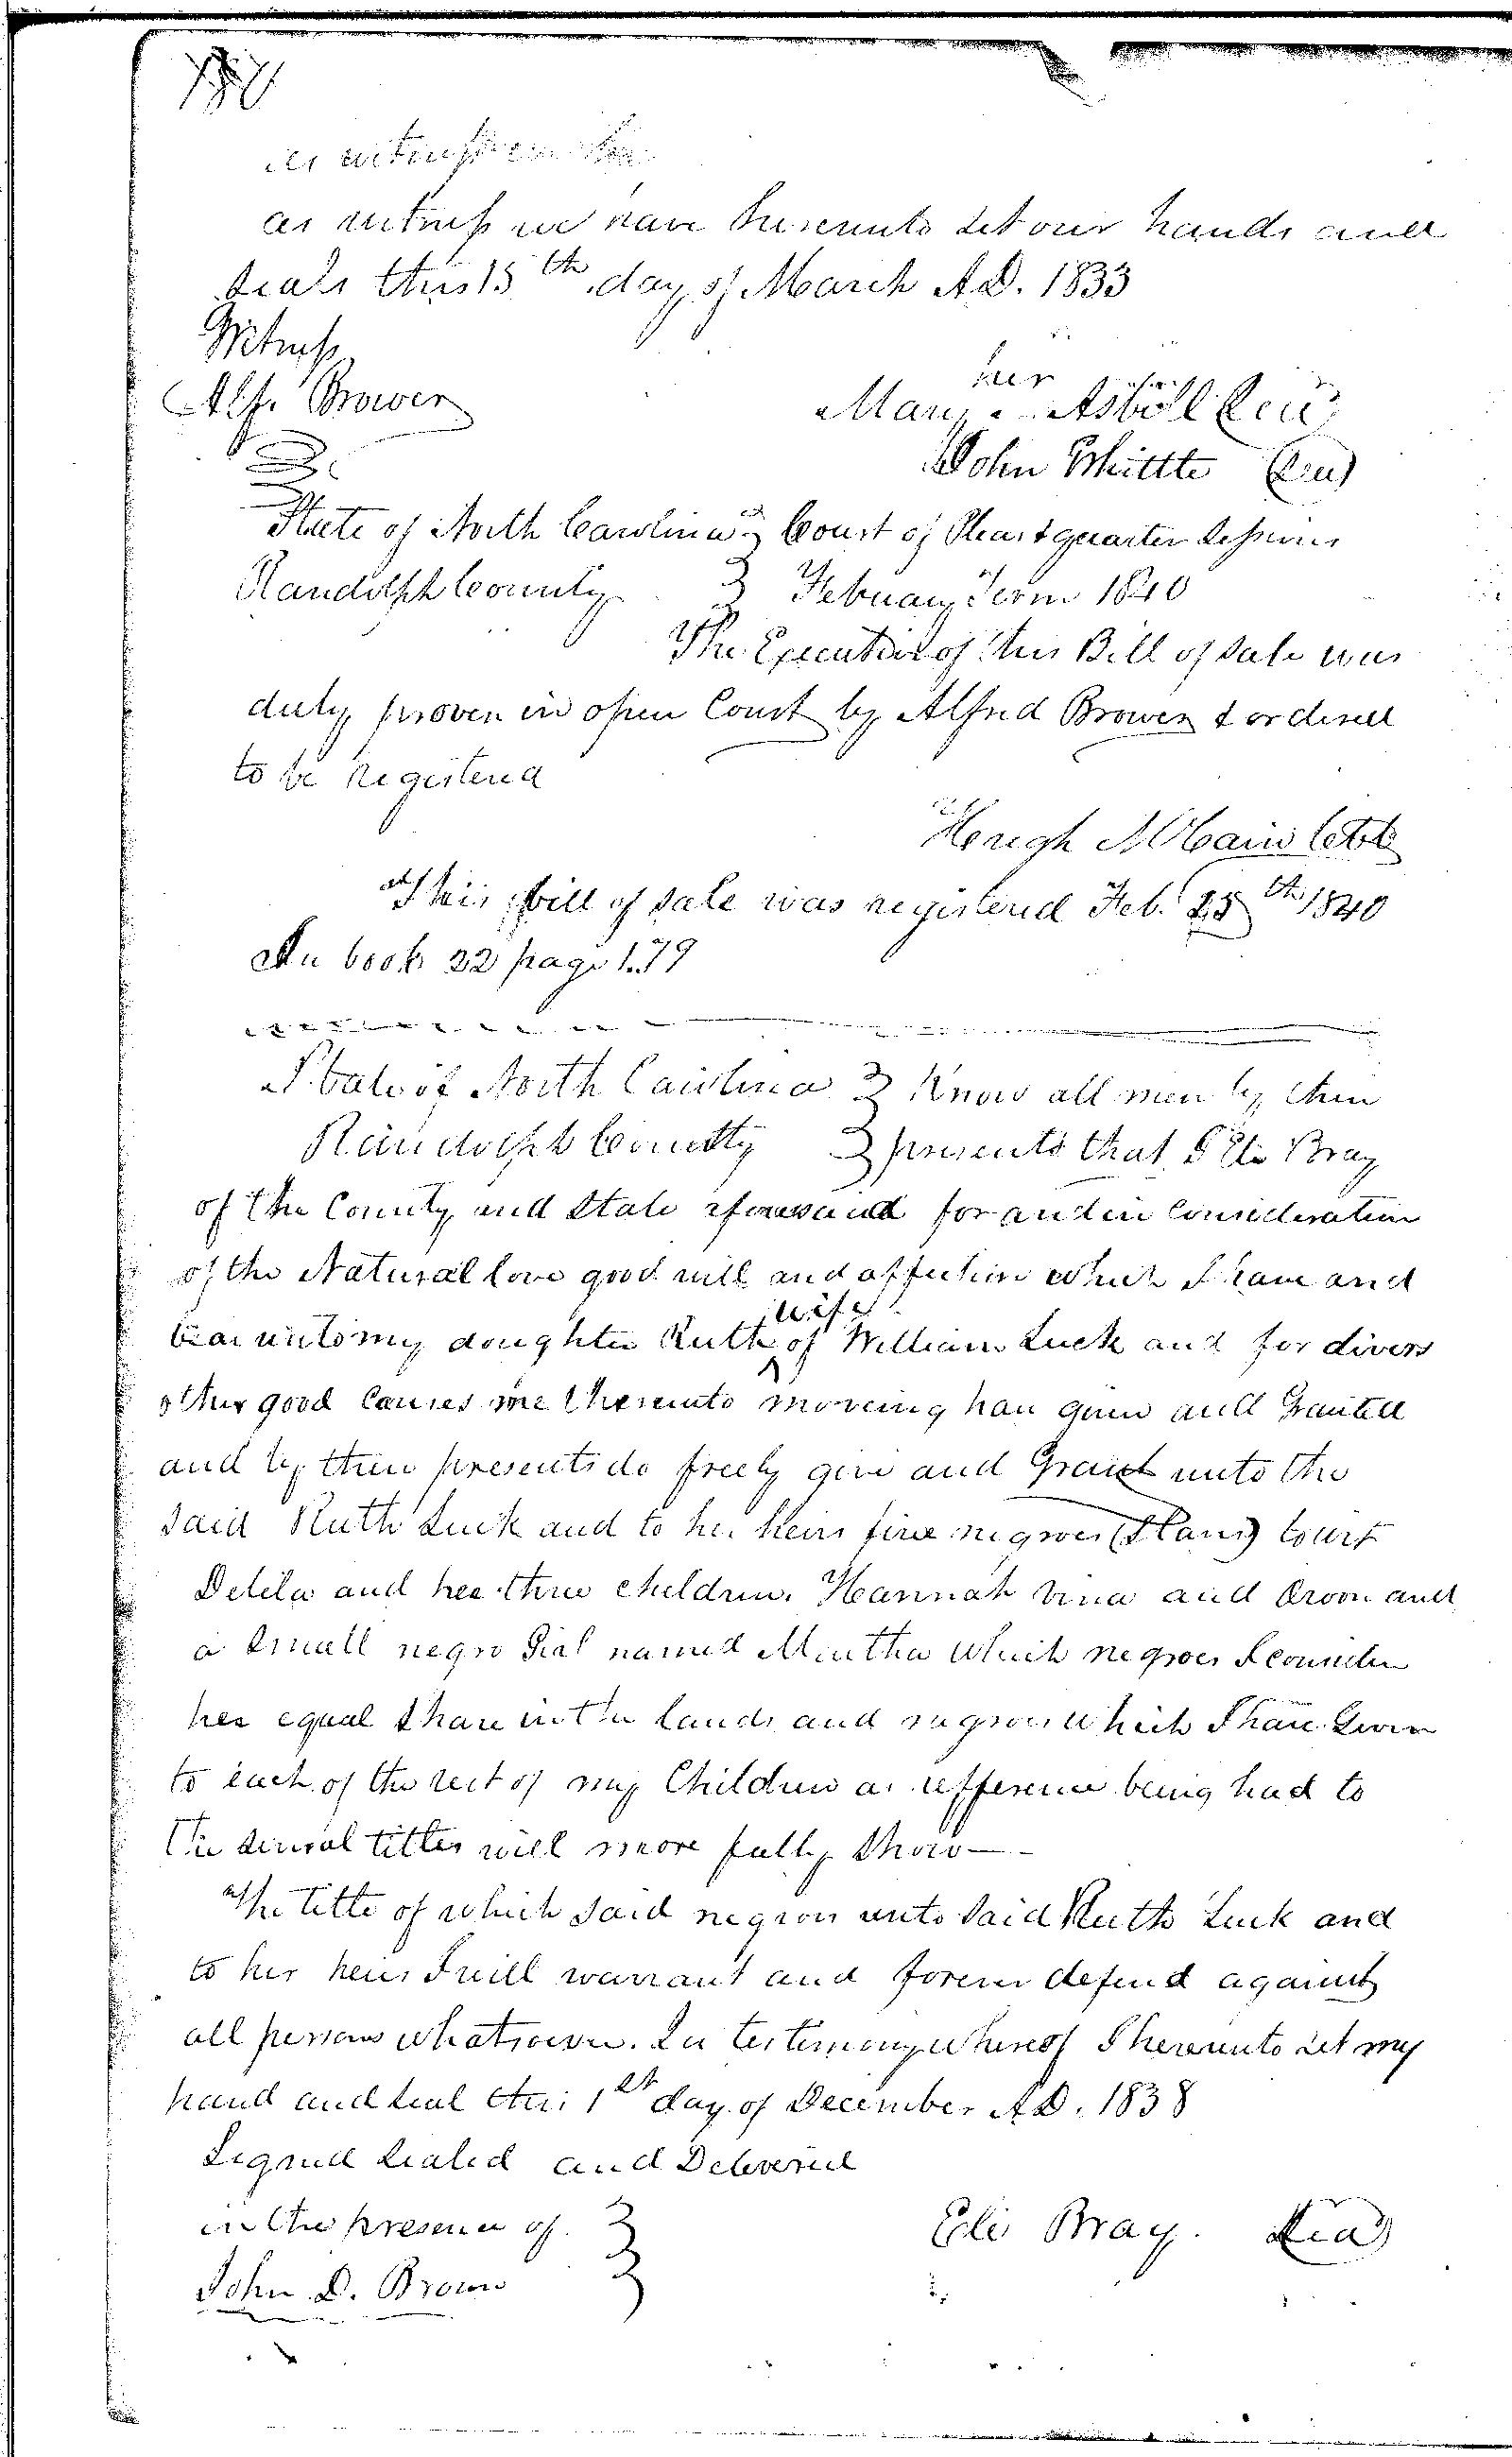 180
as witness
as witness we have hereunto set our hands and
seals this 15th day of March A.D. 1833
Witness
Alf. Brower
her
Mary Asbill Seal
John Shittte Seal
State of North Carolina Court of Pleas & quarter Sessions
Randolph County Febuary Term 1840
The Execution of this Bill of Sale was
duly proven in open Court by Alfred Brower & ordered
to be Registered
Hugh McCain Clk
This Bill of sale was registered Feb. 25th 1840
In book 22 page 179
State of North Carolina Know all men by these
Randolph County presents that I Eli Bray
of the County and State aforesaid for and in Consideration
of the Natural love good will and affection which I have and
wife
bear unto my doughter Ruth of William Luck and for divers
other good Causes me thereunto moveing have given and Granted
and by these presents do freely give and Grant unto the
said Ruth Luck and to her heirs five negroes (Slaves) to wit
Delila and her three children. Hannah Vina and Aroon and
a Small negro Girl named Mintha Which negroes I consider
her equal share in the lands and negroes which I have Given
to each of the rest of my Children as refference being had to
the several titles will more fully show—
The title of which said negroes unto said Ruth Luck and
to her heirs I will warrant and forever defend against
all persons whatsoever. In testimony whereof I hereunto set my
hand and seal this 1st day of December A.D. 1838
Signed Sealed and Delivered
in the presence of
Eli Bray. Seal
John D. Brown